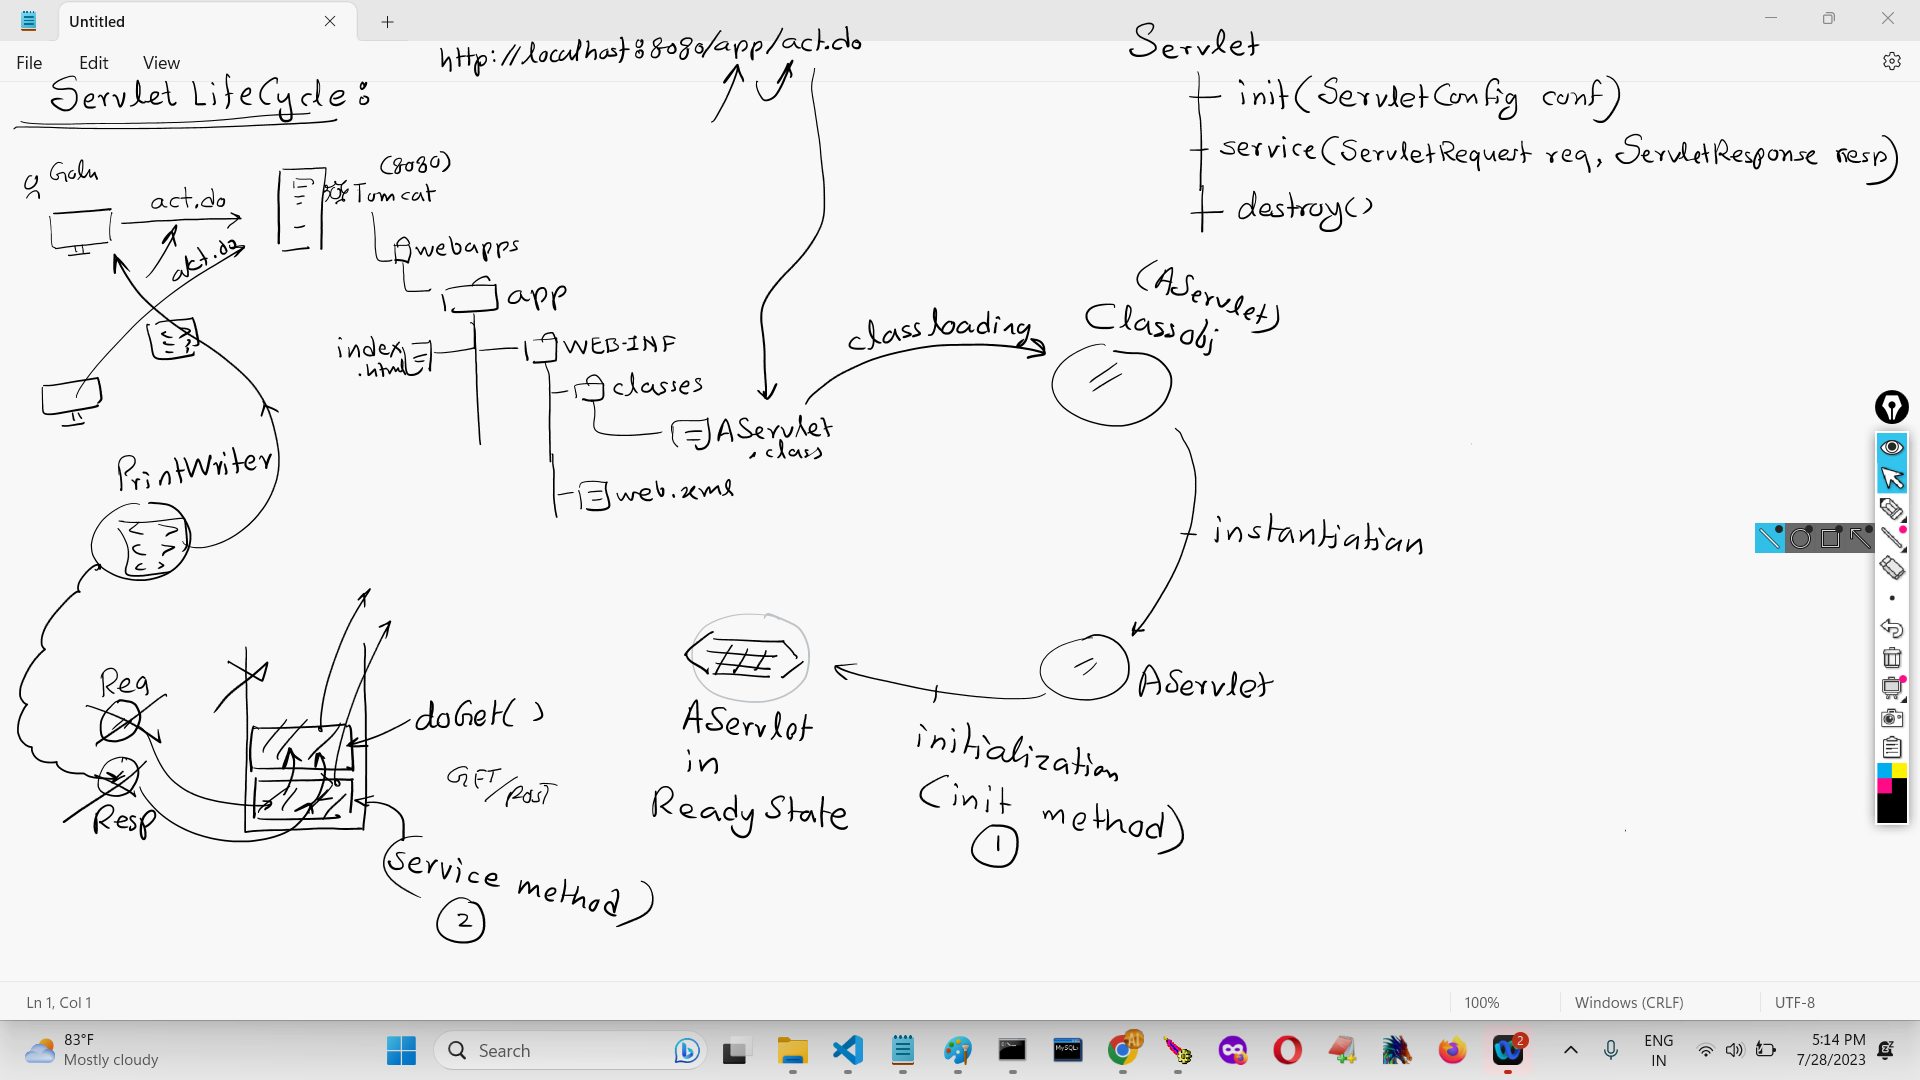 Untitled
File Edit View
http://localhost:8080/app/act.do
Servlet LifeCycle:
Servlet
init(ServletConfig conf)
service(ServletRequest req, ServletResponse resp)
destroy()
act.do
act.do
(8080)
Tomcat
webapps
app
index
.html
WEB-INF
classes
AServlet
.class
web.xml
class loading
(AServlet)
Class obj
instantiation
AServlet
initialization
(init method)
1
AServlet
in
Ready State
PrintWriter
< >
< >
< >
Req
Resp
doGet( )
GET/POST
service method)
2
Ln 1, Col 1
100%
Windows (CRLF)
UTF-8
83°F
Mostly cloudy
Search
MySQL
2
ENG
IN
5:14 PM
7/28/2023